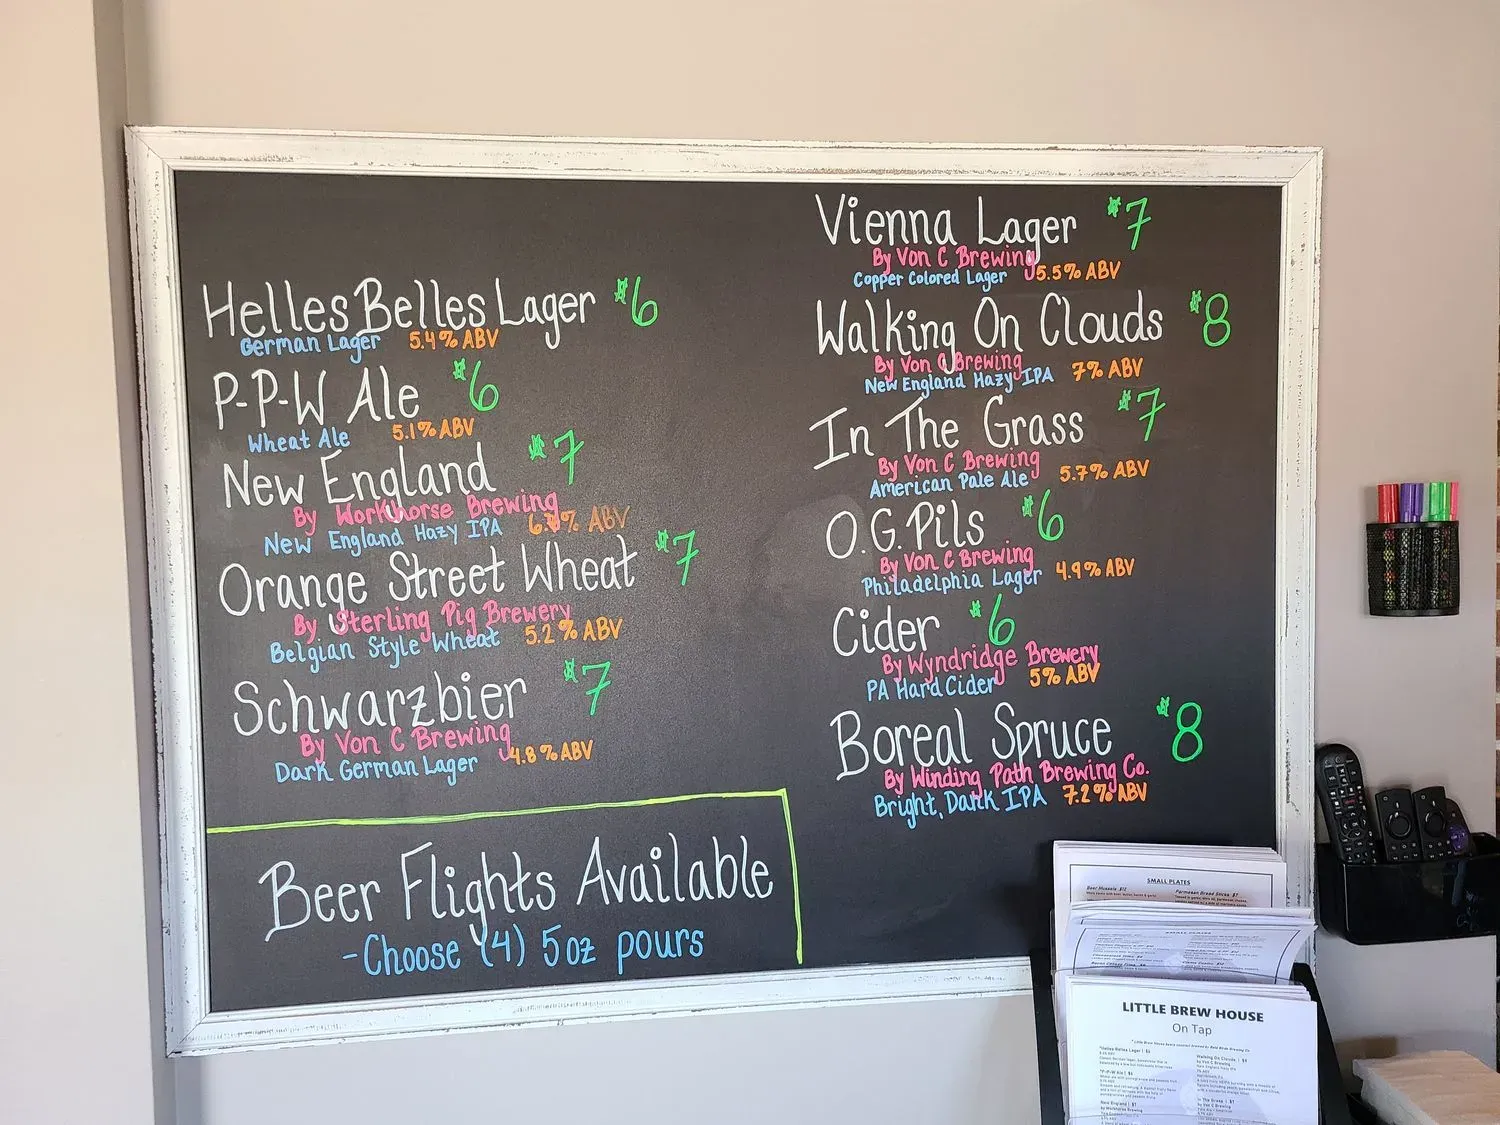 Helles Belles Lager $6
German Lager 5.4% ABV
P-P-W Ale $6
Wheat Ale 5.1% ABV
New England $7
By Workhorse Brewing
New England Hazy IPA ABV
Orange Street Wheat $7
By Sterling Pig Brewery
Belgian Style Wheat 5.2% ABV
Schwarzbier $7
By Von C Brewing
Dark German Lager 4.8% ABV
Beer Flights Available
-Choose (4) 5oz pours
Vienna Lager $7
By Von C Brewing
Copper Colored Lager 5.5% ABV
Walking On Clouds $8
By Von C Brewing
New England Hazy IPA 7% ABV
In The Grass $7
By Von C Brewing
American Pale Ale 5.7% ABV
O.G. Pils $6
By Von C Brewing
Philadelphia Lager 4.9% ABV
Cider $6
By Wyndridge Brewery
PA Hard Cider 5% ABV
Boreal Spruce $8
By Winding Path Brewing Co.
Bright, Dark IPA 7.2% ABV
SMALL PLATES
SMALL PLATES
LITTLE BREW HOUSE
On Tap